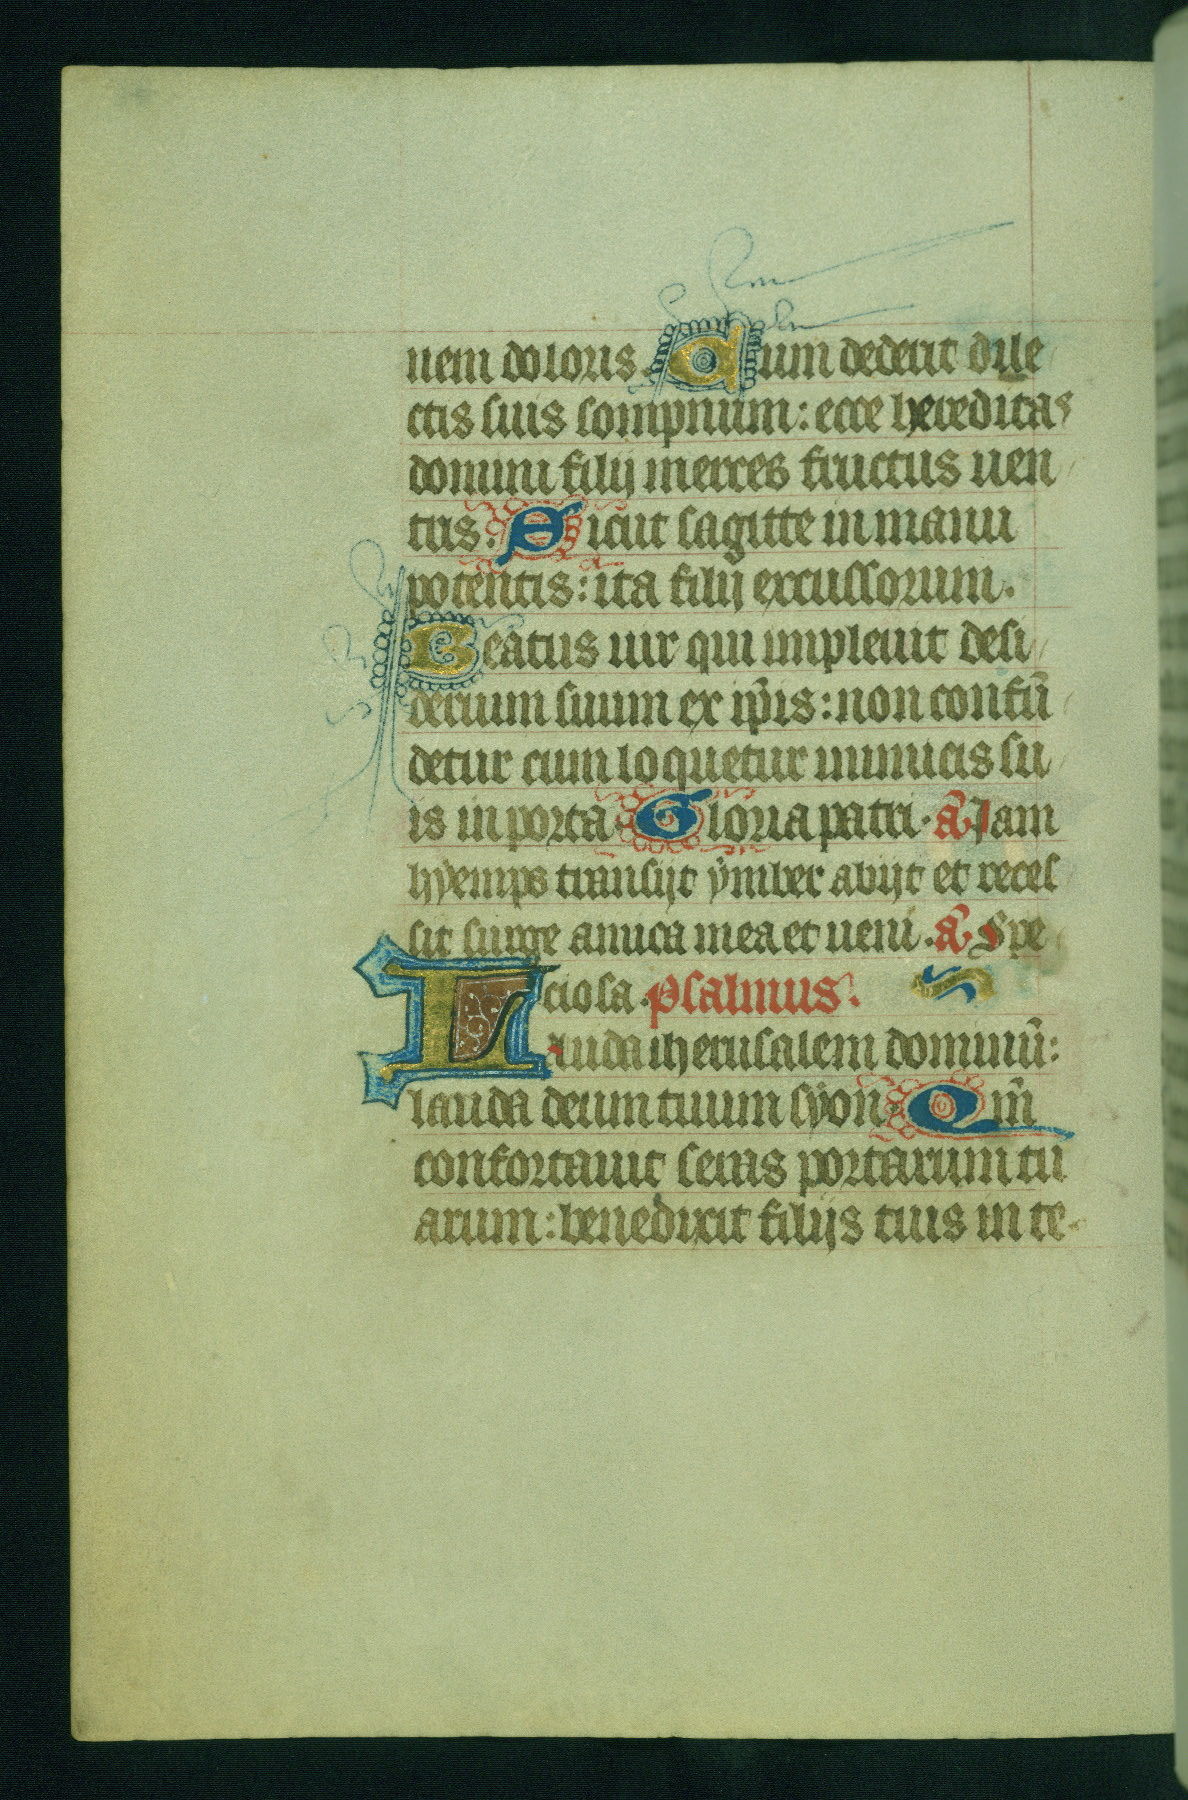 nem doloris. Cum dederit dile
ctis suis sompnum: ecce hereditas
domini filij merces fructus uen
tris. Sicut sagitte in manu
potentis: ita filij excussorum.
Beatus uir qui impleuit desi
derium suum ex ip̄is: non confū
detur cum loquetur inimicis su
is in porta. Gloria patri. a͞. Jam
hyemps transijt ymber abijt et reces
sit surge amica mea et ueni. a͞. Spe
ciosa. Psalmus.
Lauda iherusalem dominū:
lauda deum tuum syon. Qm̄
confortauit seras portarum tu
arum: benedixit filijs tuis in te.